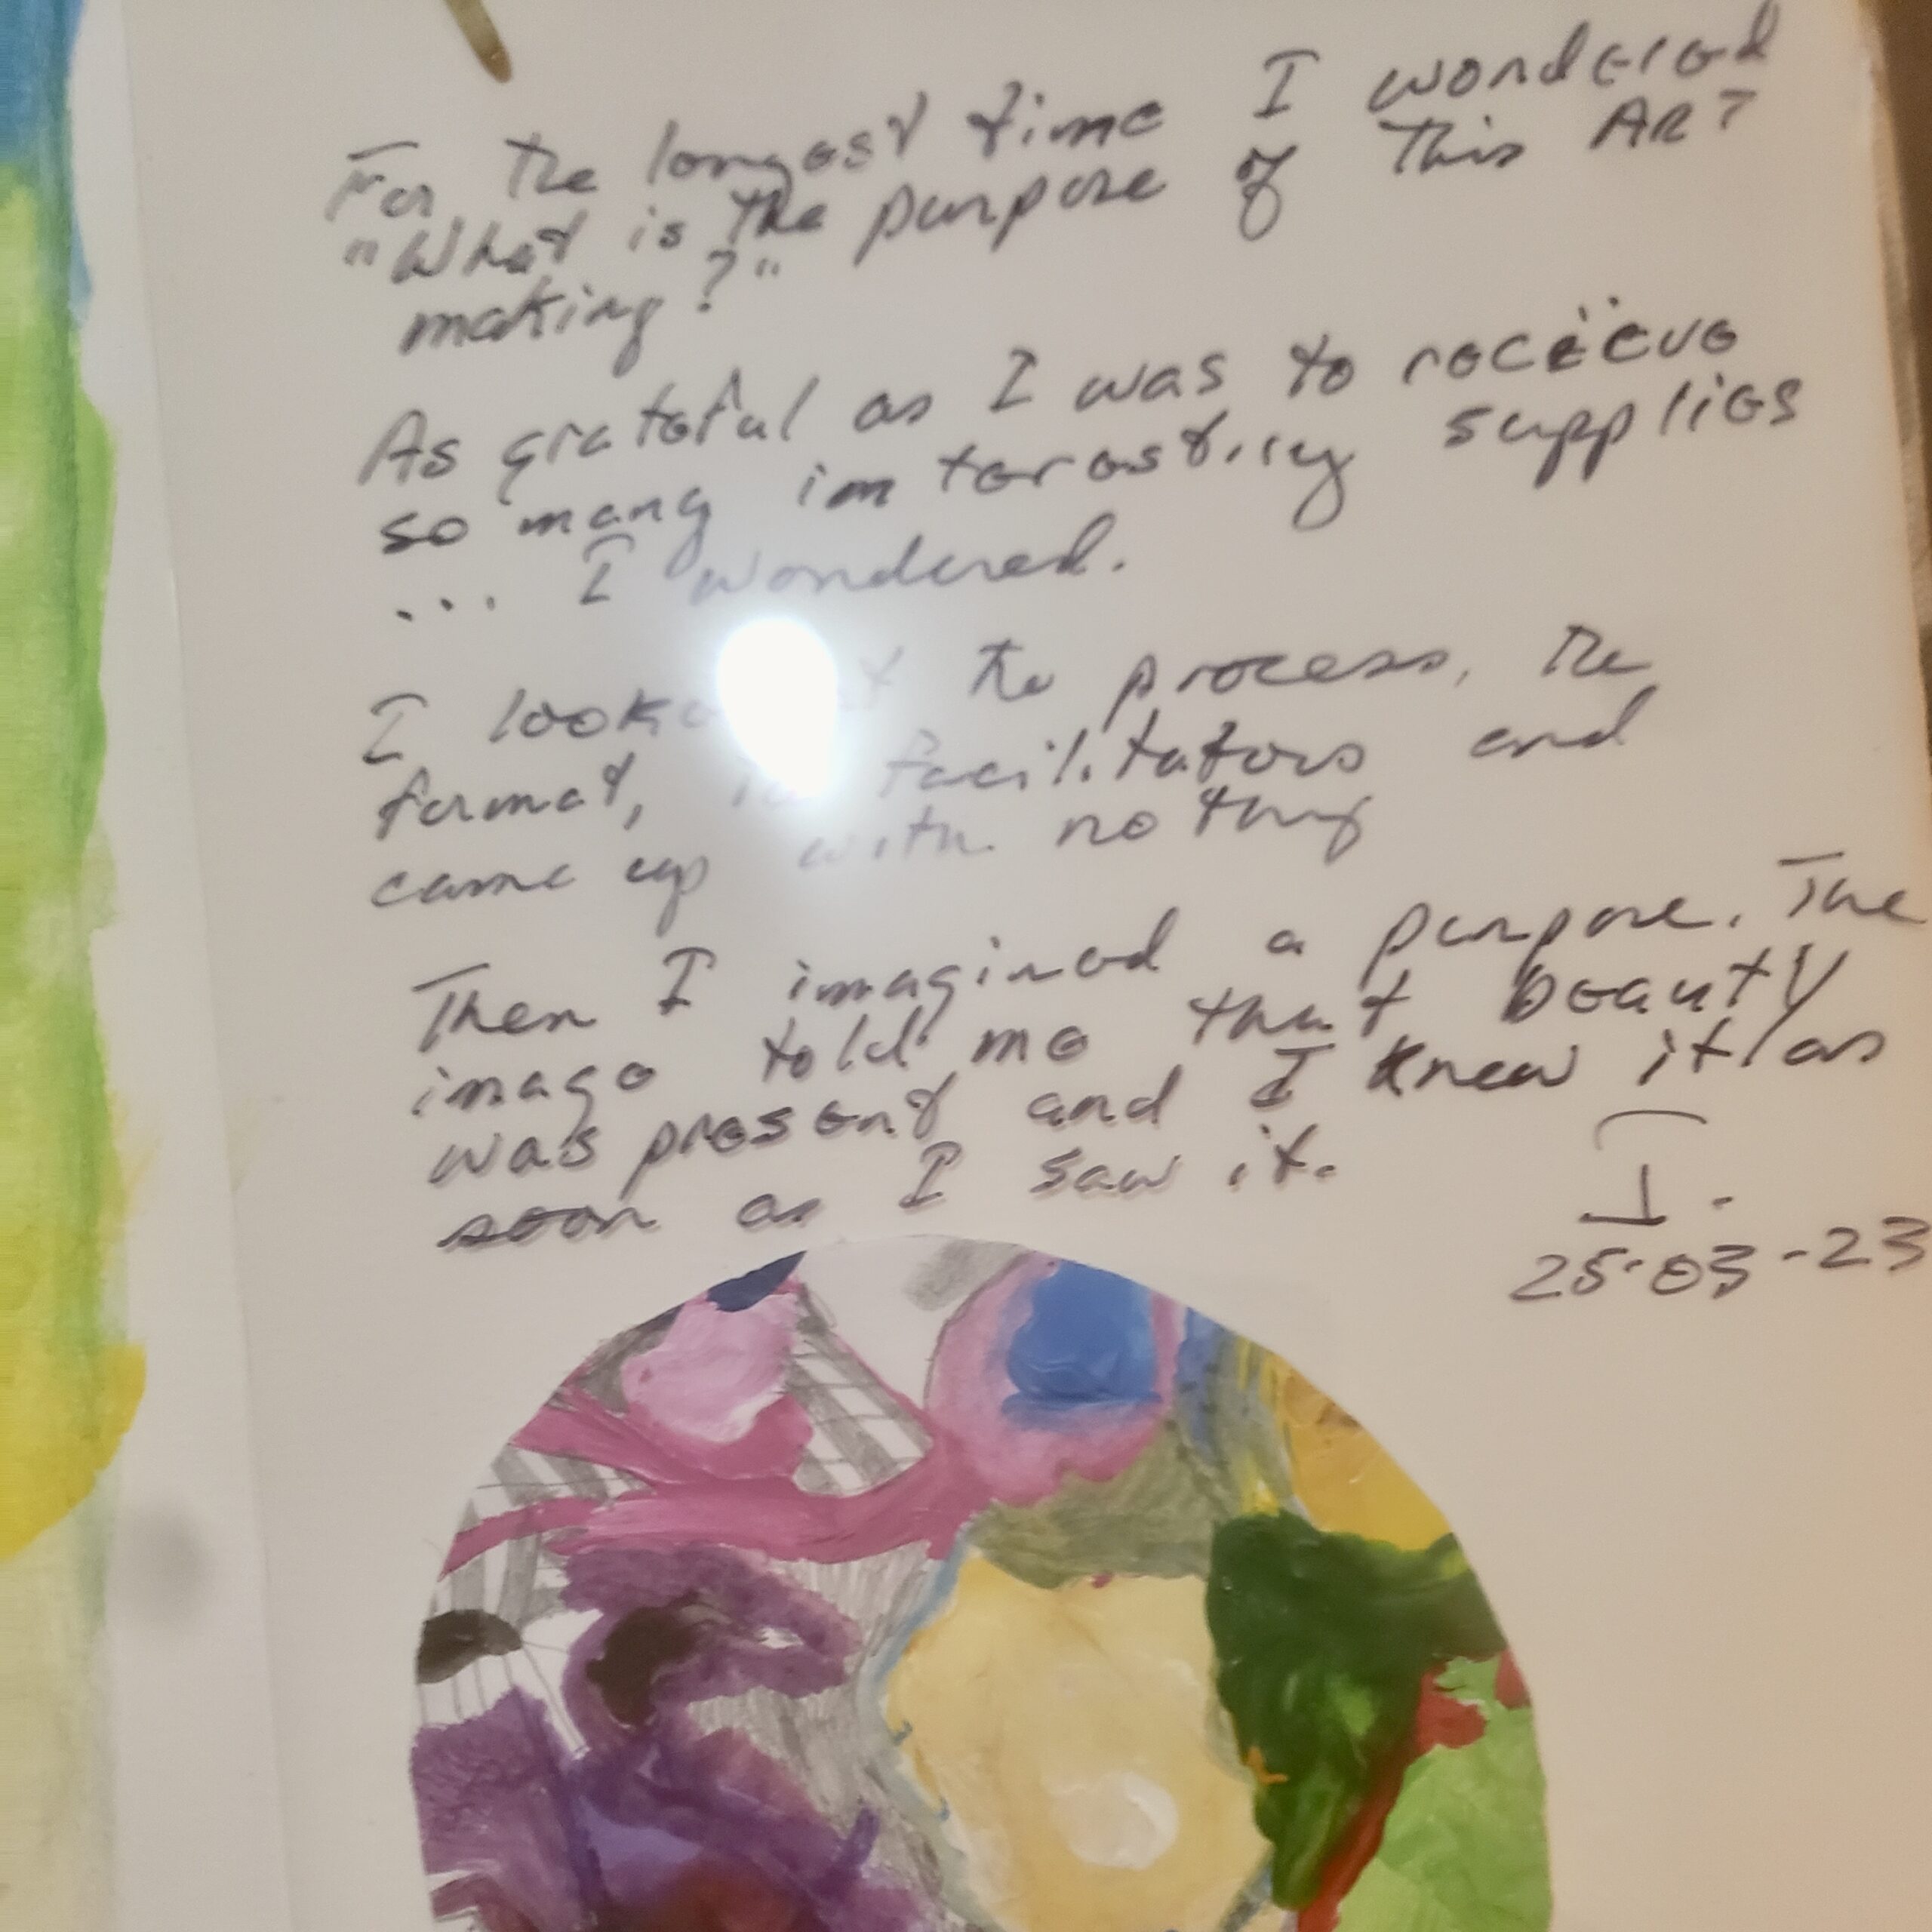 For the longest time I wondered
"What is the purpose of this ART
making?"
As grateful as I was to receive
so many interesting supplies
... I wondered.
I looked at the process, the
format, the facilitators and
came up with nothing
Then I imagined a purpose. The
image told me that beauty
was present and I knew it as
soon as I saw it.
25-03-23